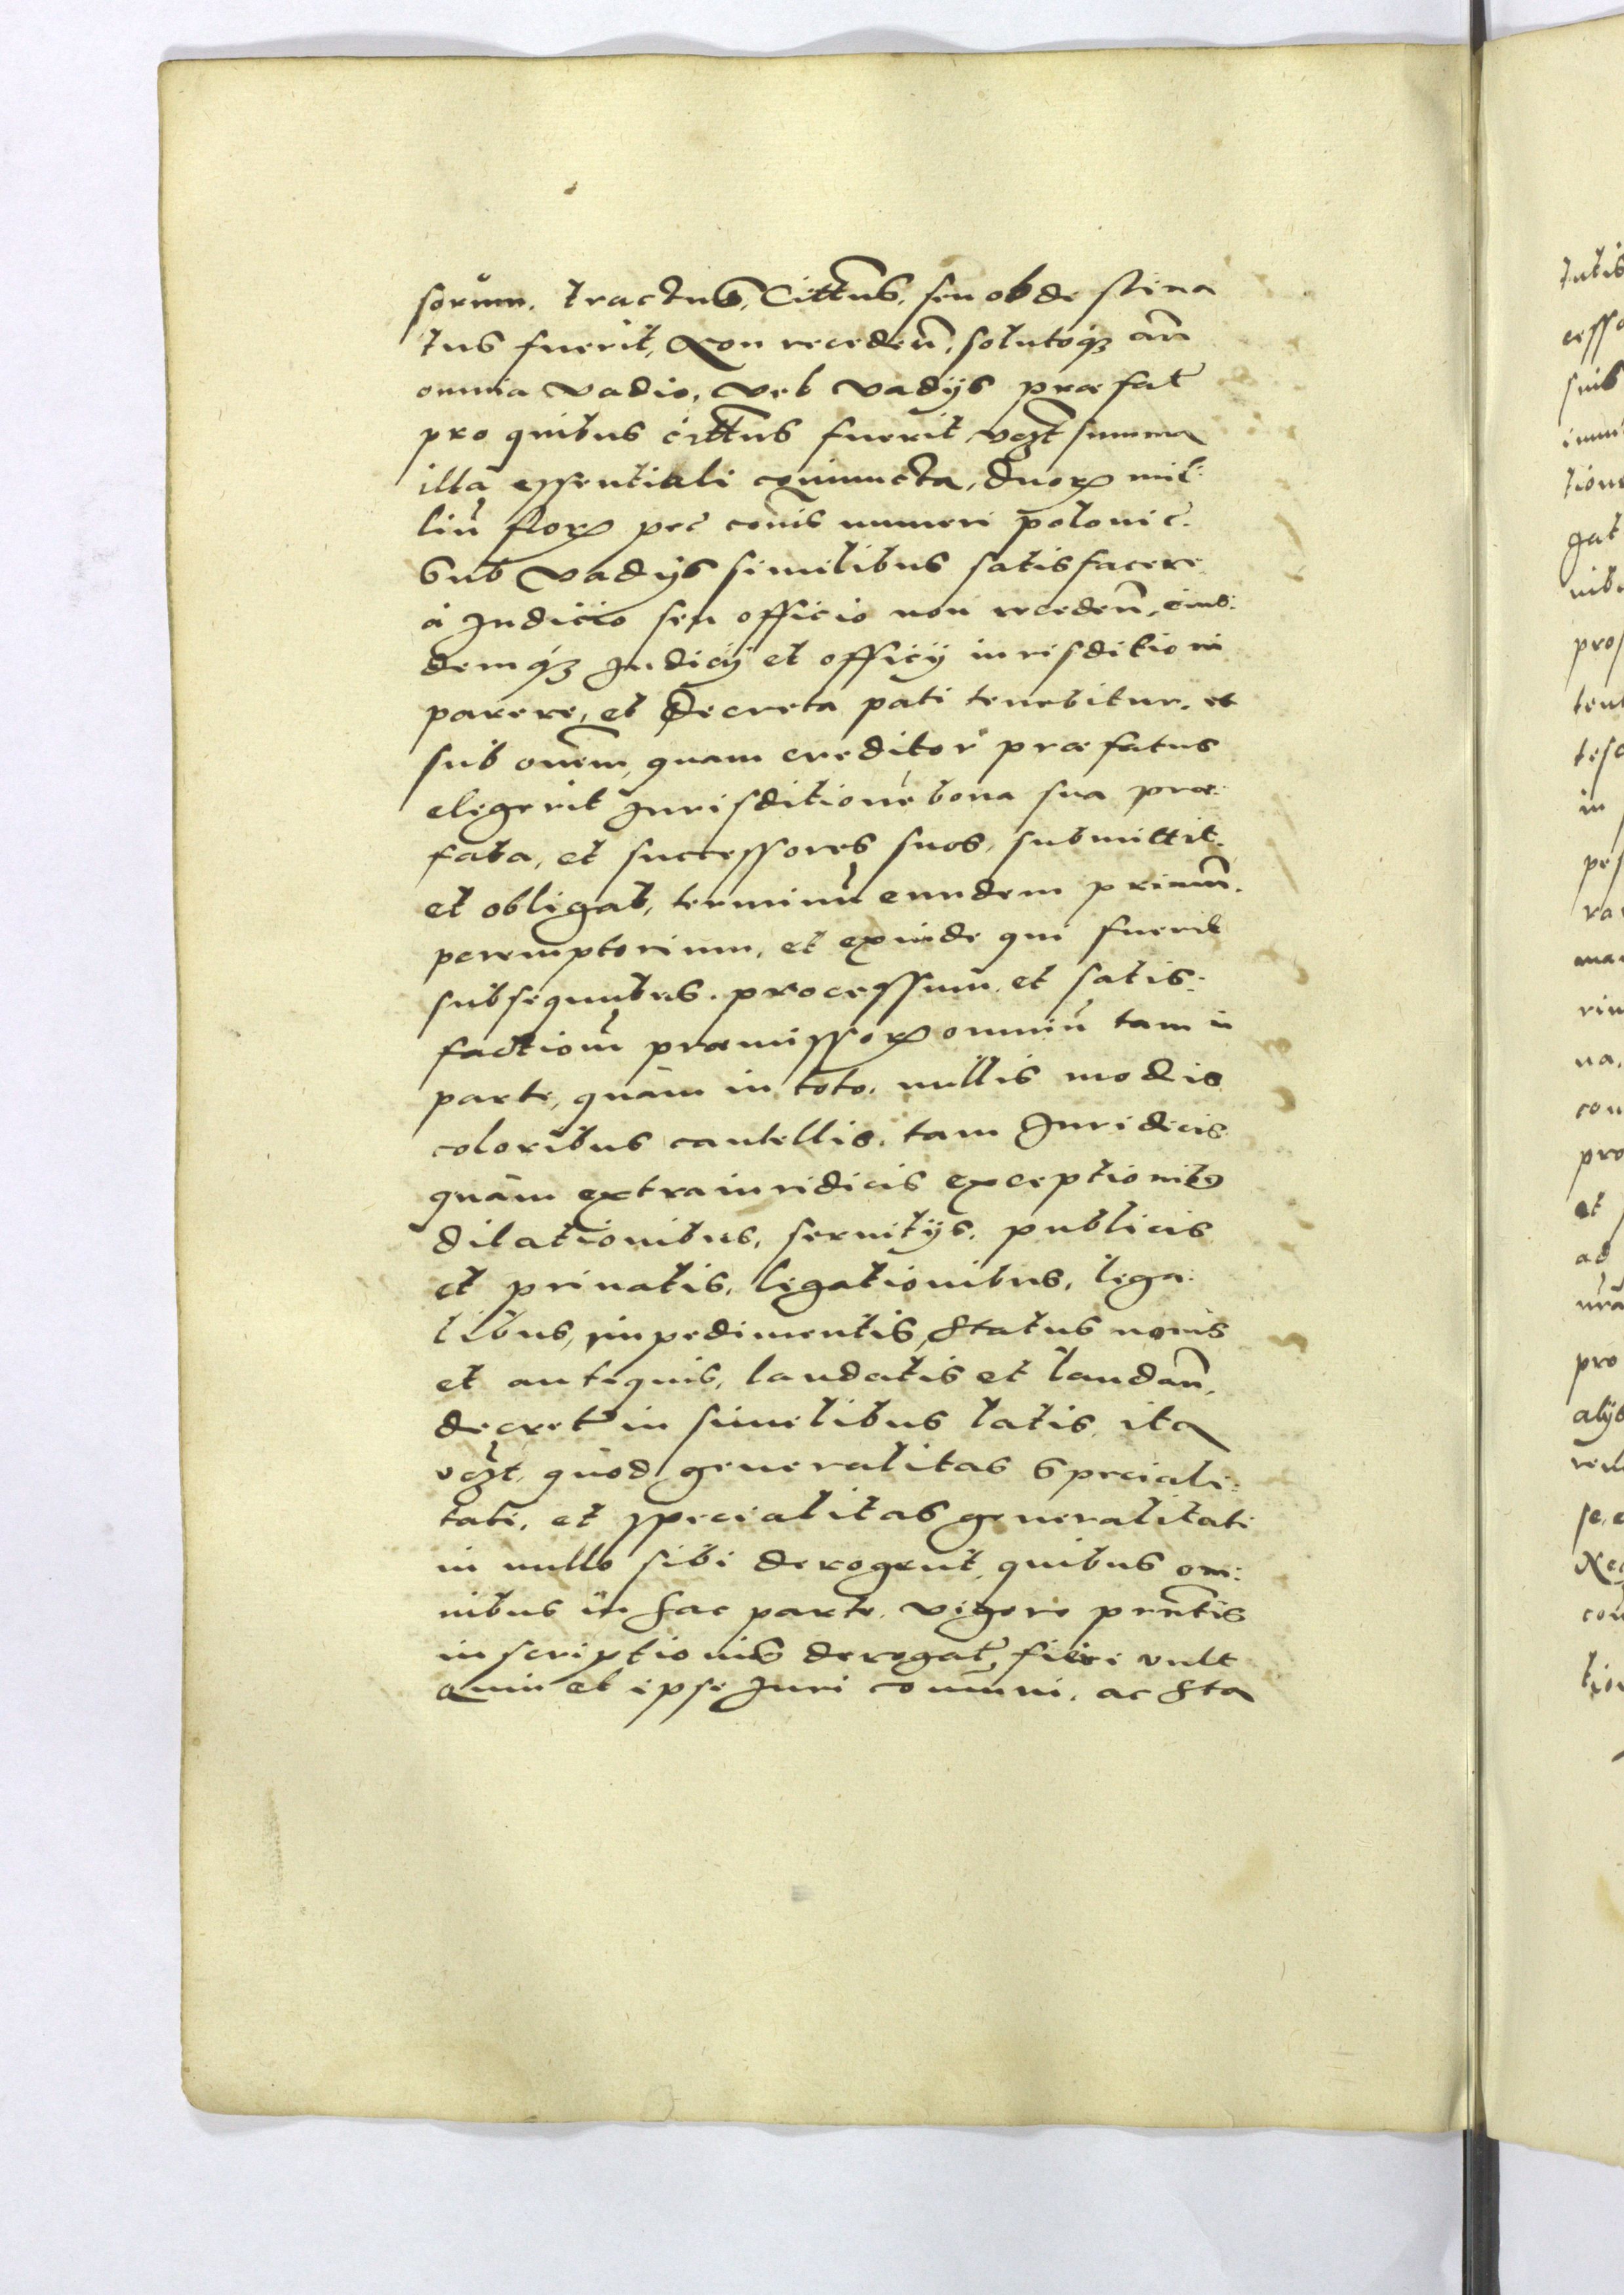 sorum. tractus, Cittus, seu obde stina
tus fuerit, Non recedeñ, solutoqz añ
omnia vadio, vel vadijs præfat
pro quibus cittus fuerit vczt summa
illa essentiali coniuncta, duorum mil:
liũ floɤ pec cõmis numeri polonic̃.
Sub vadijs similibus satisfacere
à Judicio seu officio non recedeñ, eius:
demqz Judicij et officij iurisditioni
parere, et Decreta pati tenebitur. et
sub omẽm, quam creditor præfatus
elegerit Jurisditionẽ bona sua præ:
fata, et successores suos, submittit.
et obligat, terminũ eundem primũ.
peremptorium, et exinde qui fuerit
subsequutus. processum et satis:
factionĩ præmissoɤ omniũ tam in
parte, quàm in toto. nullis modis
coloribus cautellis. tam Juridicis
quàm extraiuridicis exceptionibꝰ
dilationibus, seruitijs, publicis
et priuatis, legationibus, lega:
libus, impedimentis, status nouis
et antiquis, laudatis et laudañ,
decret in similibus latis, ita
vczt, quòd generalitas Speciali:
tati, et specialitas generalitati
in nullo sibi derogent, quibus om:
nibus in hac parte, vigore prñtis
inscriptionis derogat, fieri vult
quin et ipse Juri cõmuni, ac sta

tutis
cesso
suis
tion
gat
pros
tent
in
pes
ma
na.
con
pro
et
ad
pro
alijs
se, e